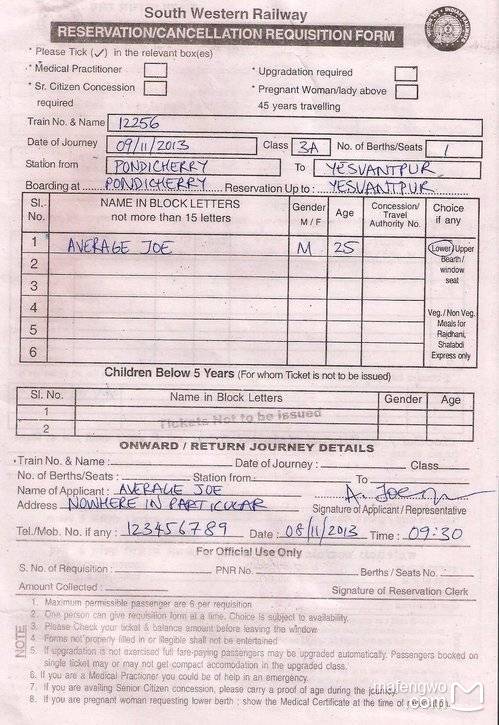 South Western Railway
RESERVATION/CANCELLATION REQUISITION FORM
* Please Tick (✓) in the relevant box(es)
* Medical Practitioner
* Upgradation required
* Sr. Citizen Concession required
* Pregnant Woman/lady above 45 years travelling
Train No. & Name 12256
Date of Journey 09/11/2013 Class 3A No. of Berths/Seats 1
Station from PONDICHERRY To YESVANTPUR
Boarding at PONDICHERRY Reservation Up to : YESVANTPUR
Sl. No. NAME IN BLOCK LETTERS not more than 15 letters Gender M / F Age Concession/ Travel Authority No. Choice if any
1 AVERAGE JOE M 25 Lower/Upper
2 Bearth / window seat
3
4 Veg. / Non Veg. Meals for
5 Rajdhani, Shatabdi
6 Express only
Children Below 5 Years (For whom Ticket is not to be issued)
Sl. No. Name in Block Letters Gender Age
1 Tickets Not to be issued
2
ONWARD / RETURN JOURNEY DETAILS
Train No. & Name : Date of Journey : Class
No. of Berths/Seats : Station from To
Name of Applicant : AVERAGE JOE A. Joe
Address NOWHERE IN PARTICULAR Signature of Applicant / Representative
Tel./Mob. No. if any : 123456789 Date : 08/11/2013 Time : 09:30
For Official Use Only
S. No. of Requisition : PNR No. Berths / Seats No.
Amount Collected : Signature of Reservation Clerk
NOTE
1. Maximum permissible passenger are 6 per requisition
2. One person can give requisition form at a time. Choice is subject to availability.
3. Please Check your ticket & balance amount before leaving the window
4. Forms not properly filled in or illegible shall not be entertained
5. If upgradation is not exercised full fare-paying passengers may be upgraded automatically. Passengers booked on
single ticket may or may not get compact accomodation in the upgraded class.
6. If you are a Medical Practitioner you could be of help in an emergency.
7. If you are availing Senior Citizen concession, please carry a proof of age during the journey
8. If you are pregnant woman requesting lower berth ; show the Medical Certificate at the time of
mafengwo